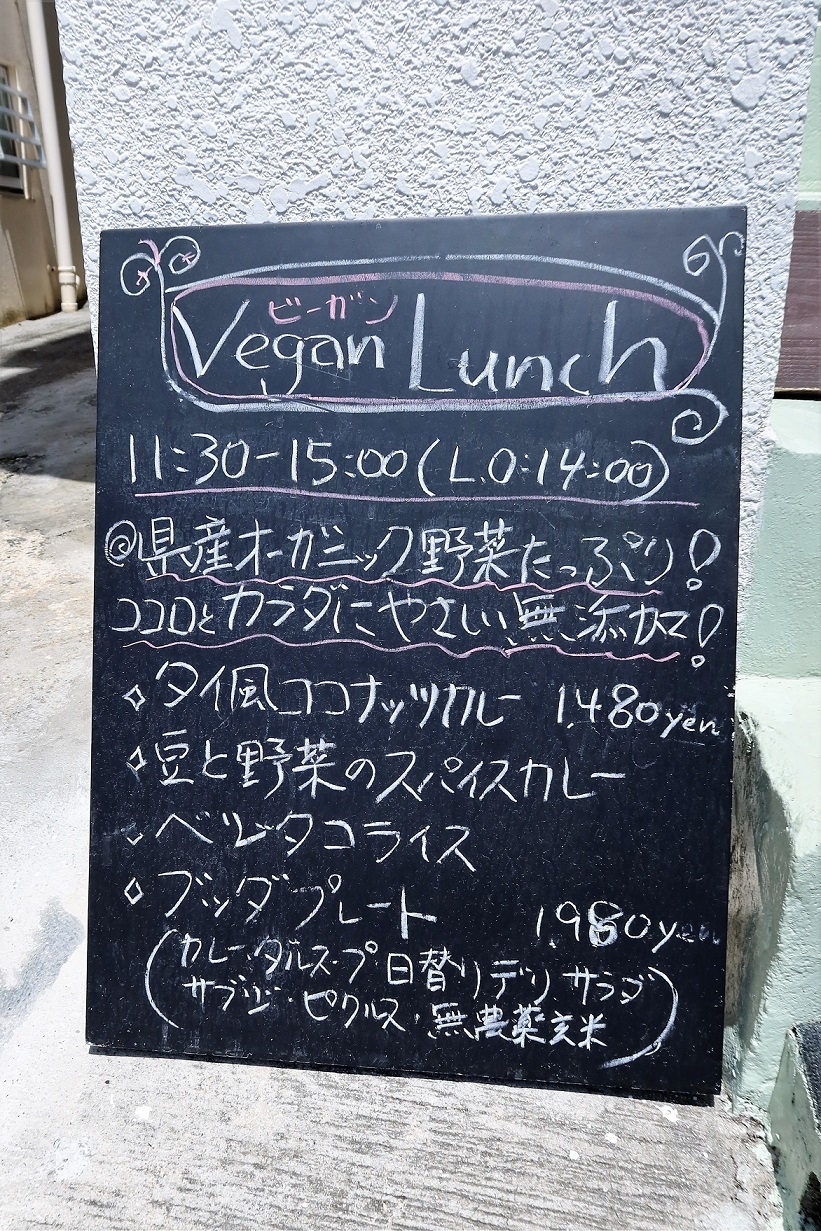 ビーガン
Vegan Lunch
11:30-15:00(L.O:14:00)
@県産オーガニック野菜たっぷり!
ココロとカラダにやさしい無添加!
◇タイ風ココナッツカレー 1,480yen
◇豆と野菜のスパイスカレー
◇ベジタコライス
◇ブッダプレート 1,980yen
(カレー・ダルスープ・日替りデリ・サラダ
サブジ・ピクルス・無農薬玄米)